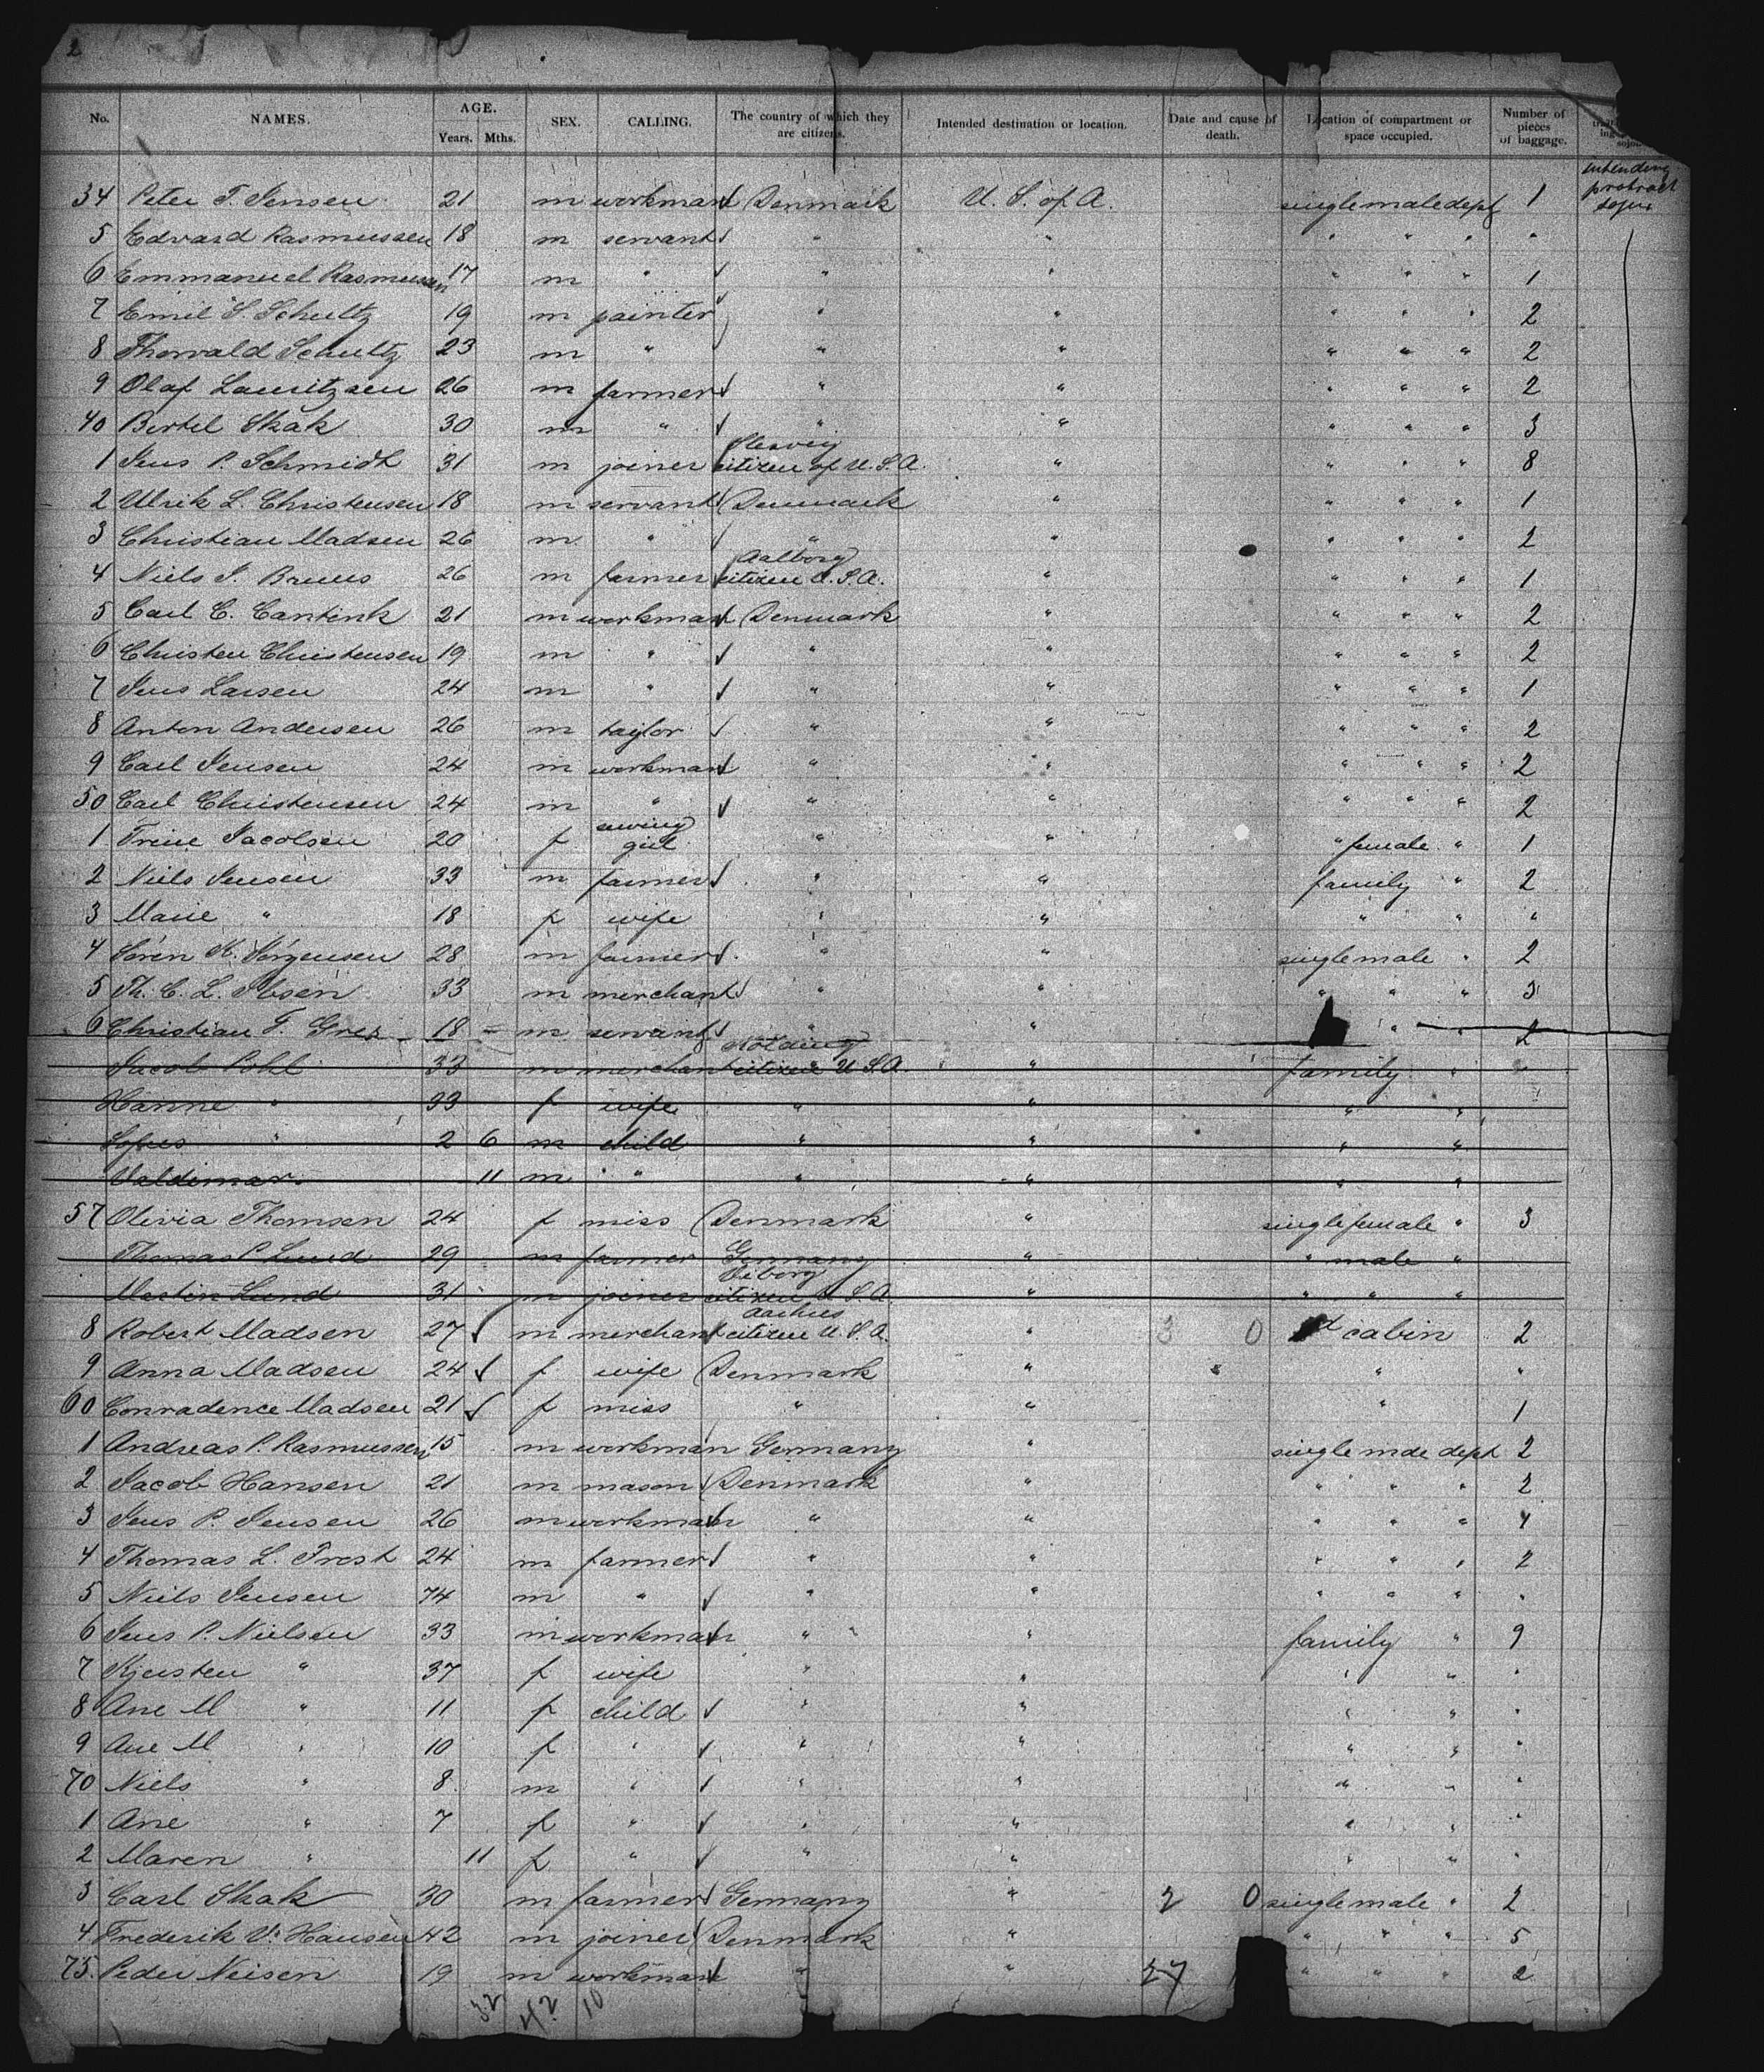 2
No. NAMES. AGE. Years. Mths. SEX. CALLING. The country of which they are citizens. Intended destination or location. Date and cause of death. Location of compartment or space occupied. Number of pieces of baggage.
intending
protract
34 Peter T. Jensen 21 m workman Denmark U. S. of A. single male dept 1
5 Edvard Rasmussen 18 m servant " " " " " "
6 Emmanuel Rasmussen 17 m " " " " " " 1
7 Emil S. Schultz 19 m painter " " " " " 2
8 Thorvald Schultz 23 m " " " " " " 2
9 Olaf Lauritzsen 26 m farmer " " " " " 2
40 Bertel Skak 30 m " " " " " " 3
1 Jens P. Schmidt 31 m joiner Slesvig citizen of U. S. A. " " " " 8
2 Ulrik L. Christensen 18 m servant Denmark " " " " 1
3 Christian Madsen 26 m " " " " " " 2
4 Niels J. Bruus 26 m farmer Aalborg citizen U. S. A. " " " " 1
5 Carl C. Cantink 21 m workman Denmark " " " " 2
6 Christen Christensen 19 m " " " " " " 2
7 Jens Larsen 24 m " " " " " " 1
8 Anton Andersen 26 m taylor " " " " " 2
9 Carl Jensen 24 m workman " " " " " 2
50 Carl Christensen 24 m " " " " " " 2
1 Trine Jacobsen 20 f sewing girl " " " female " 1
2 Niels Jensen 33 m farmer " " family " 2
3 Marie " 18 f wife " " " " "
4 Søren K. Jørgensen 28 m farmer " " single male " 2
5 Th. C. L. Ibsen 33 m merchant " " " " " 3
6 Christian T. Gres 18 m servant " " " " 2
Jacob Pohl 33 m merchant Kolding citizen U S. A. " family " "
Hanne " 33 f wife " " " "
Sofus " 2 6 m child " " " "
Valdemar 11 m " " " " "
57 Olivia Thomsen 24 f miss Denmark " single female " 3
Thomas P. Lund 29 m farmer Germany " " male "
Martin Lund 31 m joiner Viborg citizen U. S. A. " " " "
8 Robert Madsen 27 m merchant Aarhus citizen U. S. A. " 3 0 cabin 2
9 Anna Madsen 24 f wife Denmark " " "
60 Conradence Madsen 21 f miss " " " 1
1 Andreas P. Rasmussen 15 m workman Germany " single male dept 2
2 Jacob Hansen 21 m mason Denmark " " " " 2
3 Jens P. Jensen 26 m workman " " " " "
4 Thomas L. Frost 24 m farmer " " " " " 2
5 Niels Jensen 74 m " " " " " " "
6 Jens P. Nielsen 33 m workman " " family " 9
7 Kjersten " 37 f wife " " " " "
8 Ane M " 11 f child " " " " "
9 Ane M " 10 f " " " " " "
70 Niels " 8 m " " " " " "
1 Ane " 7 f " " " " " "
2 Maren " 11 f " " " " " "
3 Carl Skak 30 m farmer Germany " 2 0 single male " 2
4 Frederik V. Hansen 42 m joiner Denmark " " " " 5
75. Peder Neisen 19 m workman " " 27 " " " 2
32 42 10